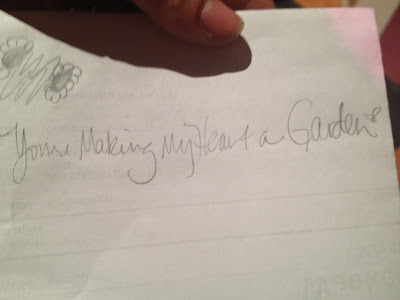 You're Making My Heart a Garden